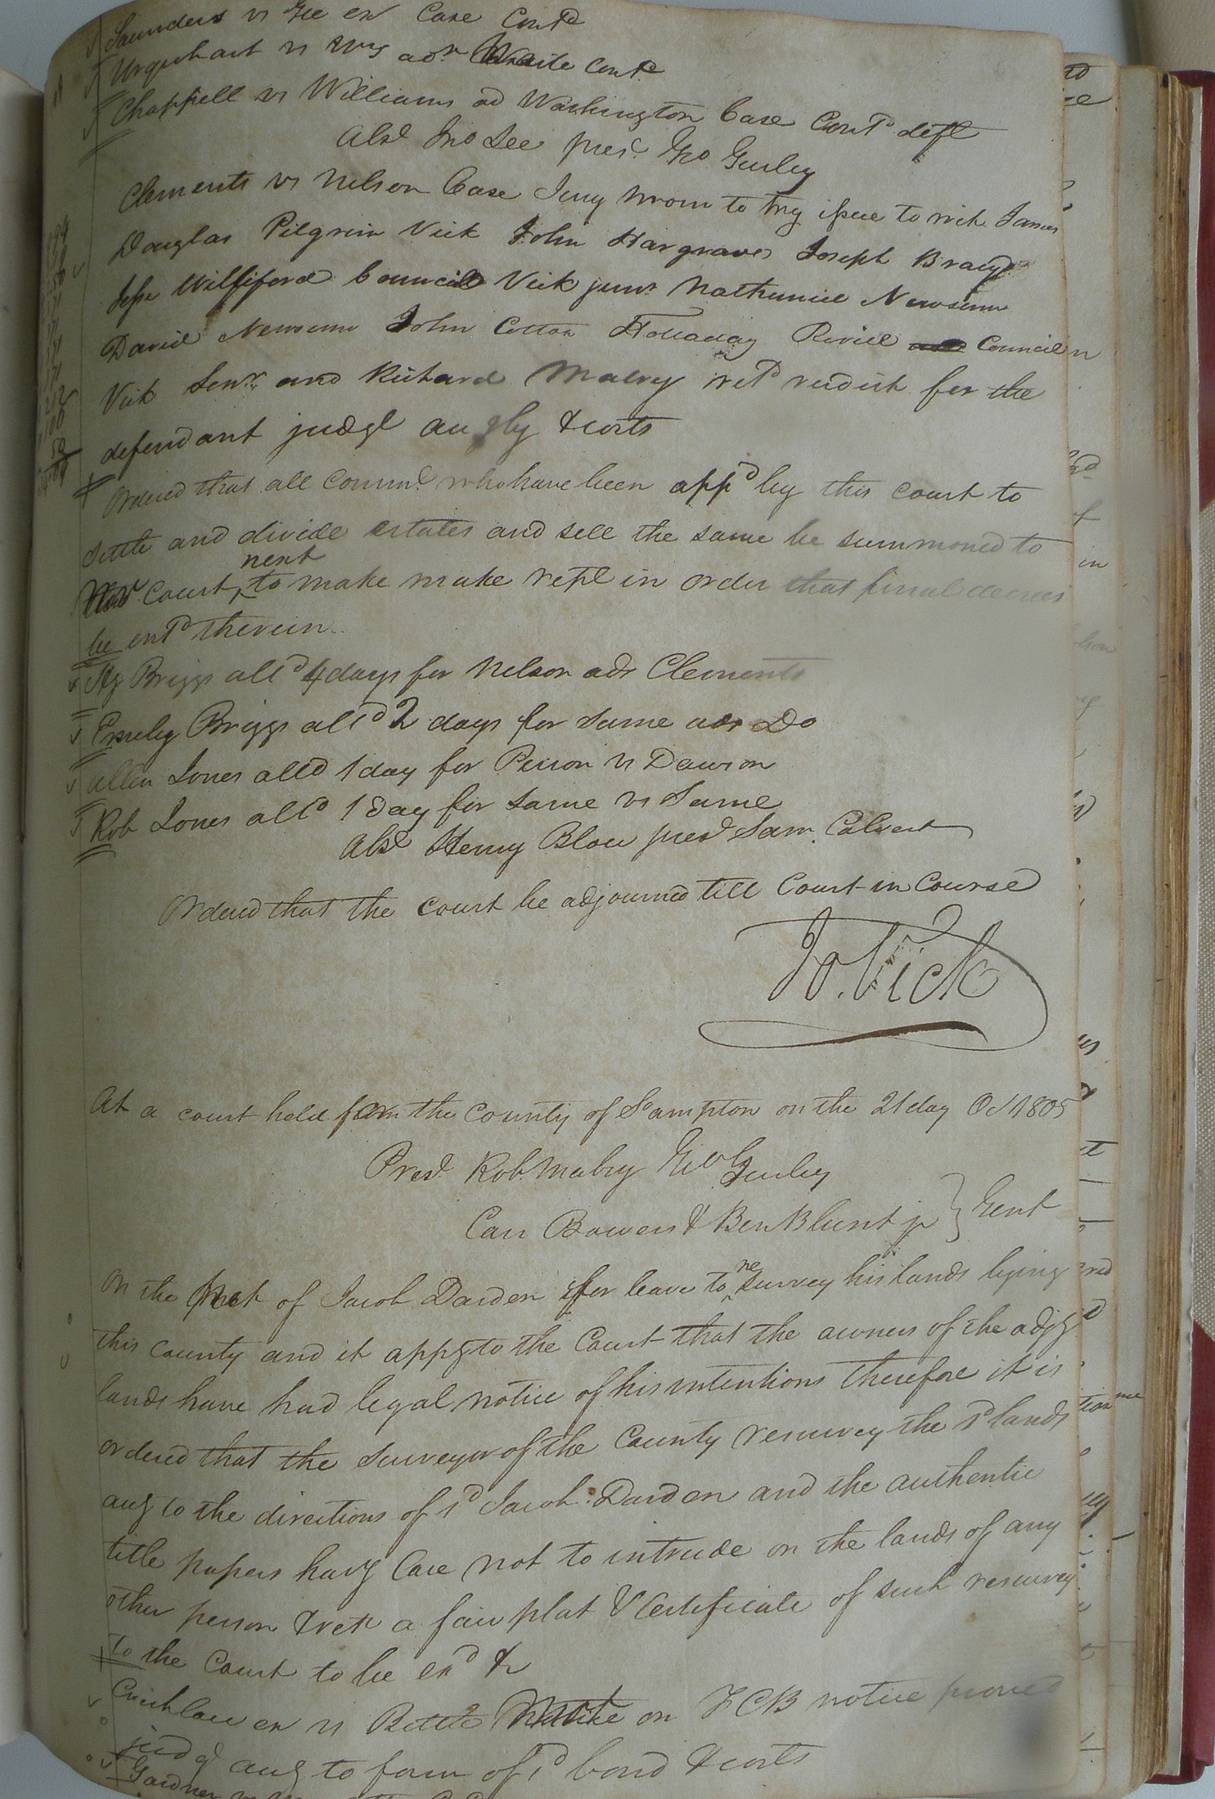 Saunders vs Gee ex Case Contd
Urquhart vs adr Waite Contd
Chappell vs Williams ad Washington Case Contd deft
Abst Jno Lee prest Geo Gurley
Clements vs Nelson Case Jury sworn to try issue to wit James
Douglas Pilgrim Vick John Hargraves Joseph
Jesse Williford Council Vick junr Nathaniel Newsum
David Newsum John Cotton Holladay Revill Council
Vick Senr and Richard Mabry retd verdict for the
defendant judgt & costs
Ordered that all Commrs who have been appd by this court to
settle and divide estates and sell the same be summoned to
next
Court to make make rept in order that final decrees
be entd therein
Briggs alld 4 days for Nelson ads Clements
Briggs alld 2 days for same ads Do
Jones alld 1 day for vs Dawson
Rob Jones alld 1 Day for same vs Same
Abst Henry Blow prest Sam Calvert
Ordered that the court be adjourned till Court in Course
Jo. Vick
At a court held for the County of Sampton on the 21 day Oct 1805
Prest Rob Mabry Geo Gurley
Carr Bowers & Ben Blunt jr } Gent
On the of Jacob Darden for leave to resurvey his lands lying
this County and it appg to the Court that the owners of the adjg
lands have had legal notice of his intentions therefore it is
ordered that the Surveyor of the County resurvey the sd lands
accg to the directions of sd Jacob Darden and the authentic
title papers havg Care not to intrude on the lands of any
other person & retn a fair plat & Certificate of such resurvey
to the Court to be exd &
Crichlow ex vs on FCB notice proved
judgt accg to form of sd bond & costs
Gardner vs